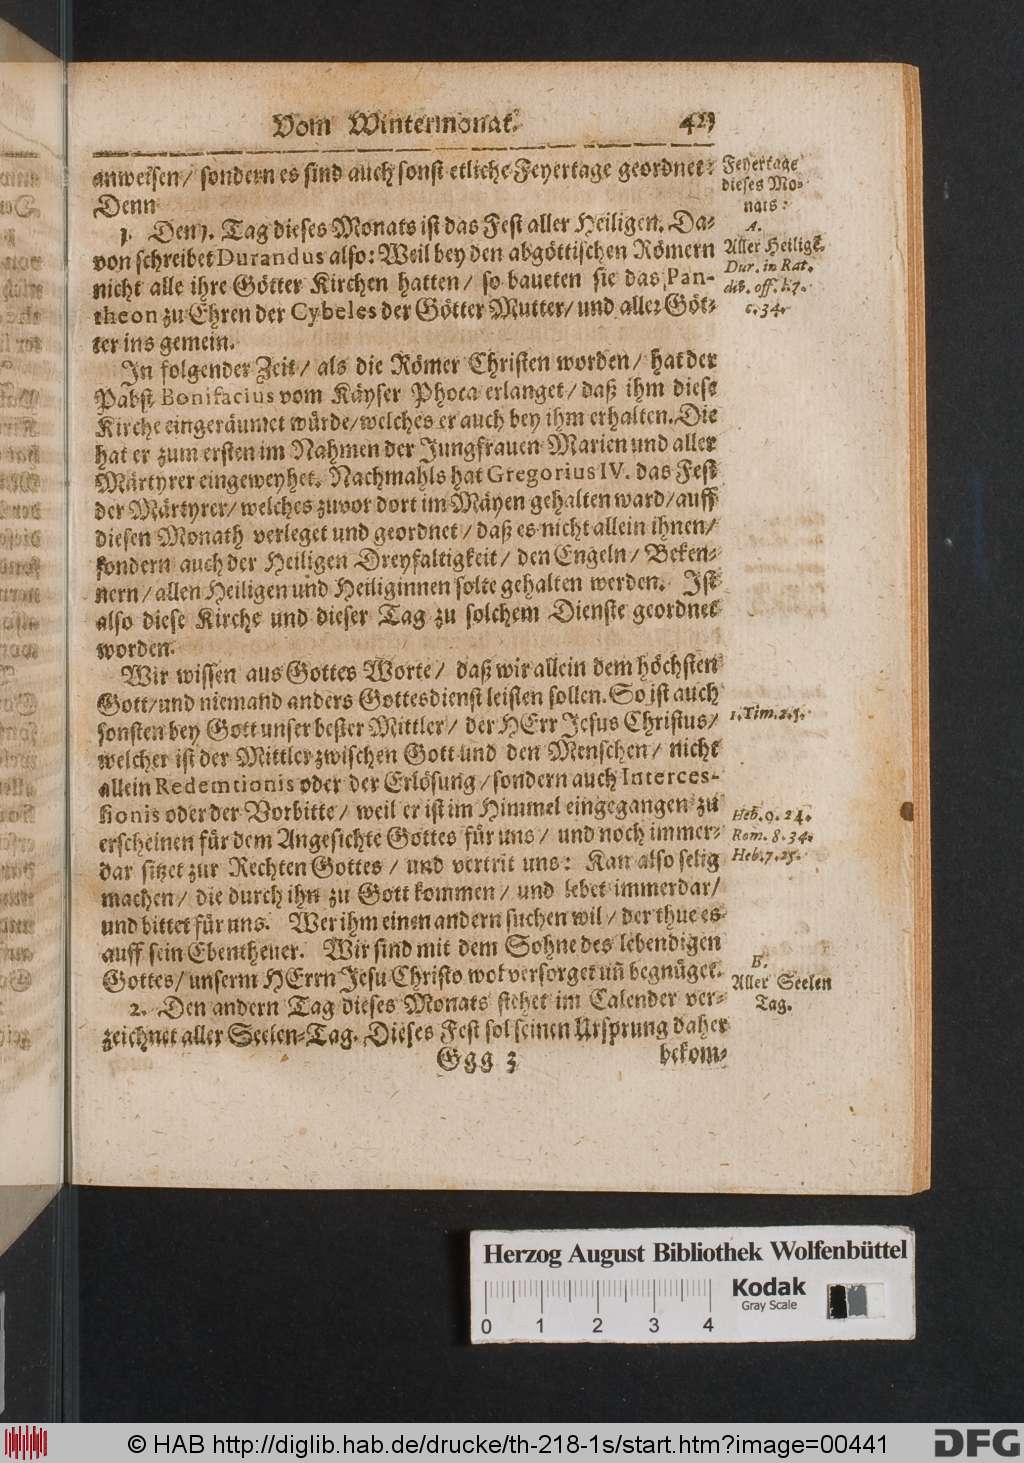 Vom Wintermonat. 423
anweisen/ sondern es sind auch sonst etliche Feyertage geordnet:
Denn
1. Den 1. Tag dieses Monats ist das Fest aller Heiligen. Da-
von schreibet Durandus also: Weil bey den abgöttischen Römern
nicht alle ihre Götter Kirchen hatten/ so baueten sie das Pan-
theon zu Ehren der Cybeles der Götter Mutter/ und aller Göt-
ter ins gemein.
In folgender Zeit/ als die Römer Christen worden/ hat der
Pabst Bonifacius vom Käyser Phoca erlanget/ daß ihm diese
Kirche eingeräumet würde/ welches er auch bey ihm erhalten. Die
hat er zum ersten im Nahmen der Jungfrauen Marien und aller
Märtyrer eingeweyhet. Nachmahls hat Gregorius IV. das Fest
der Märtyrer/ welches zuvor dort im Mäyen gehalten ward/ auff
diesen Monath verleget und geordnet/ daß es nicht allein ihnen/
sondern auch der Heiligen Dreyfaltigkeit/ den Engeln/ Beken-
nern/ allen Heiligen und Heiliginnen solte gehalten werden. Ist
also diese Kirche und dieser Tag zu solchem Dienste geordnet
worden.
Wir wissen aus Gottes Worte/ daß wir allein dem höchsten
Gott/ und niemand anders Gottesdienst leisten sollen. So ist auch
sonsten bey Gott unser bester Mittler/ der HErr Jesus Christus/
welcher ist der Mittler zwischen Gott und den Menschen/ nicht
allein Redemtionis oder der Erlösung/ sondern auch Interces-
sionis oder der Vorbitte/ weil er ist im Himmel eingegangen zu
erscheinen für dem Angesichte Gottes für uns/ und noch immer-
dar sitzet zur Rechten Gottes/ und vertrit uns: Kan also selig
machen/ die durch ihn zu Gott kommen/ und lebet immerdar/
und bittet für uns. Wer ihm einen andern suchen wil/ der thue es
auff sein Ebentheuer. Wir sind mit dem Sohne des lebendigen
Gottes/ unserm HErrn Jesu Christo wol versorget uñ begnüget.
2. Den andern Tag dieses Monats stehet im Calender ver-
zeichnet aller Seelen-Tag. Dieses Fest sol seinen Ursprung daher
Ggg 3 bekom-
Feyertage
dieses Mo-
nats:
A.
Aller Heilige.
Dur. in Rat.
div. off. l. 7.
c. 34.
1. Tim. 2. 5.
Heb. 9. 24.
Rom. 8. 34.
Heb. 7. 25.
B.
Aller Seelen
Tag.
Herzog August Bibliothek Wolfenbüttel
Kodak
Gray Scale
0 1 2 3 4
© HAB http://diglib.hab.de/drucke/th-218-1s/start.htm?image=00441
DFG